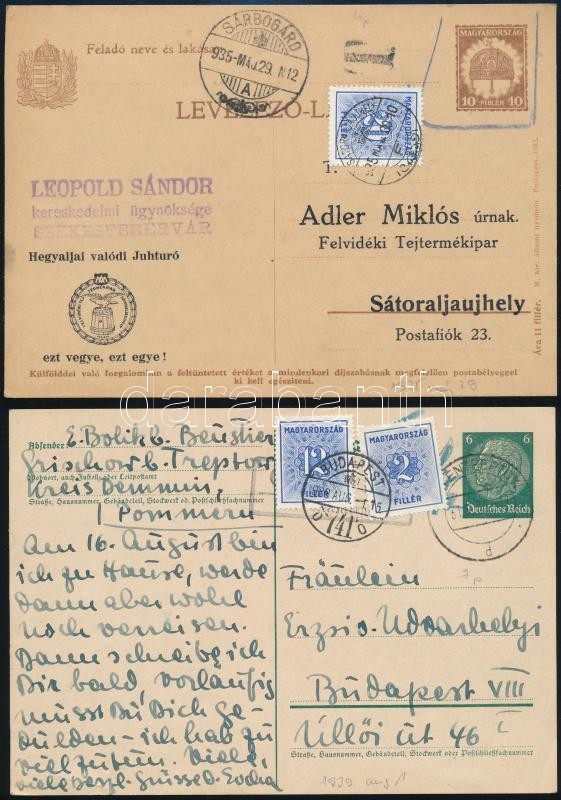 SÁRBOGÁRD
935-MÁJ.29. N12
A
Feladó neve és lakása
LEVELEZŐ-L
MAGYARORSZÁG
10 FILLÉR 10
LEOPOLD SÁNDOR
kereskedelmi ügynöksége
SZÉKESFEHÉRVÁR
T.
Adler Miklós úrnak.
Felvidéki Tejtermékipar
Hegyaljai valódi Juhturó
Sátoraljaujhely
Postafiók 23.
ezt vegye, ezt egye!
Ára 11 fillér.
Külfölddel való forgalomban a feltüntetett értéket a mindenkori díjszabásnak megfelelően postabélyeggel
ki kell egészíteni.
darabanth
Absender:
E. Bolik b. Beustier
Grischow b. Treptow
Wohnort, auch Zustell- oder Leitpostamt
Kreis Demmin,
Straße, Hausnummer, Gebäudeteil, Stockwerk od. Postschließfachnummer
Pommern
MAGYARORSZÁG
12
FILLÉR
MAGYARORSZÁG
2
FILLÉR
BUDAPEST
6 6
Deutsches Reich
Am 16. August bin
ich zu Hause, werde
dann aber wohl
noch verreisen.
Dann schreibe ich
Dir bald, vorläufig
musst Du Dich ge-
dulden - ich hab zu
viel zu tun. Viele,
viele herzl. Grüsse D.
Fräulein
Erzsi Udvarhelyi
Budapest VIII
Üllői út 46 I
Straße, Hausnummer, Gebäudeteil, Stockwerk oder Postschließfachnummer
1939 aug 1